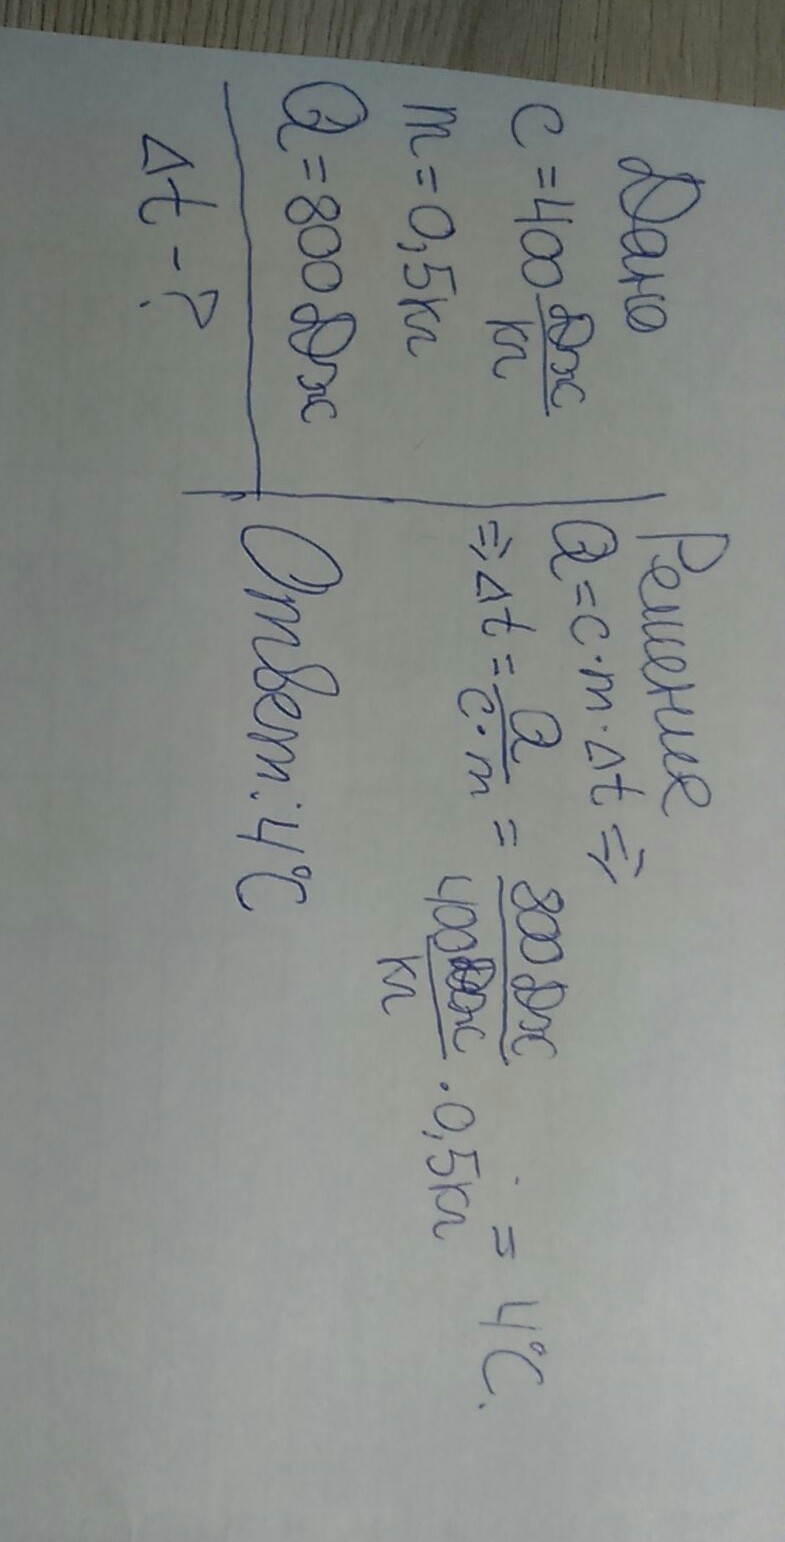 Дано
c = 400 Дж/кг
m = 0,5кг
Q = 800 Дж
Δt - ?
Решение
Q = c · m · Δt ⇒
⇒ Δt = Q/(c · m) = 800 Дж/(400 Дж/кг · 0,5кг) = 4°C.
Ответ: 4°C